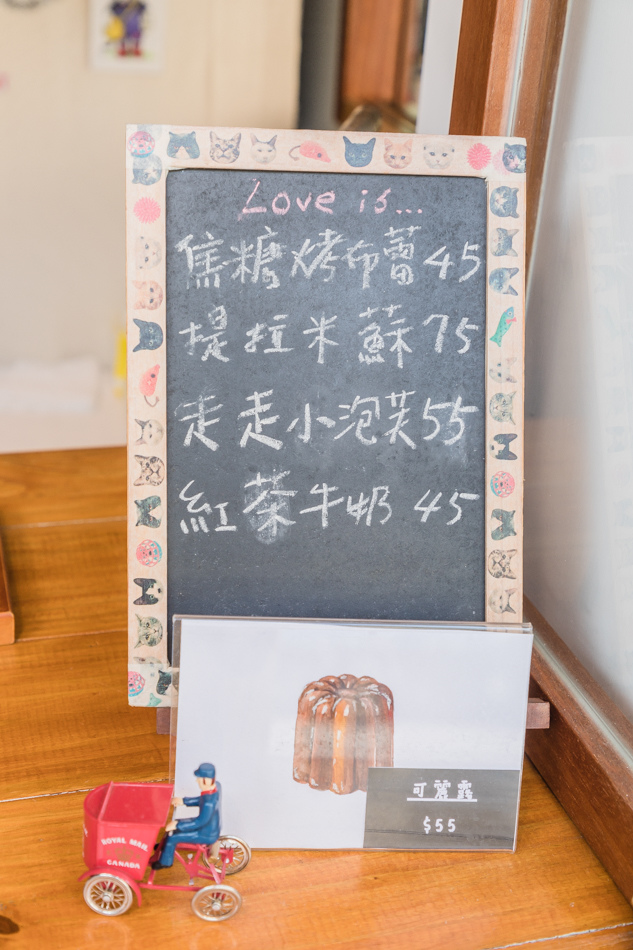 Love is...
焦糖烤布蕾 45
提拉米蘇 75
走走小泡芙 55
紅茶牛奶 45
可麗露
$55
ROYAL MAIL
CANADA